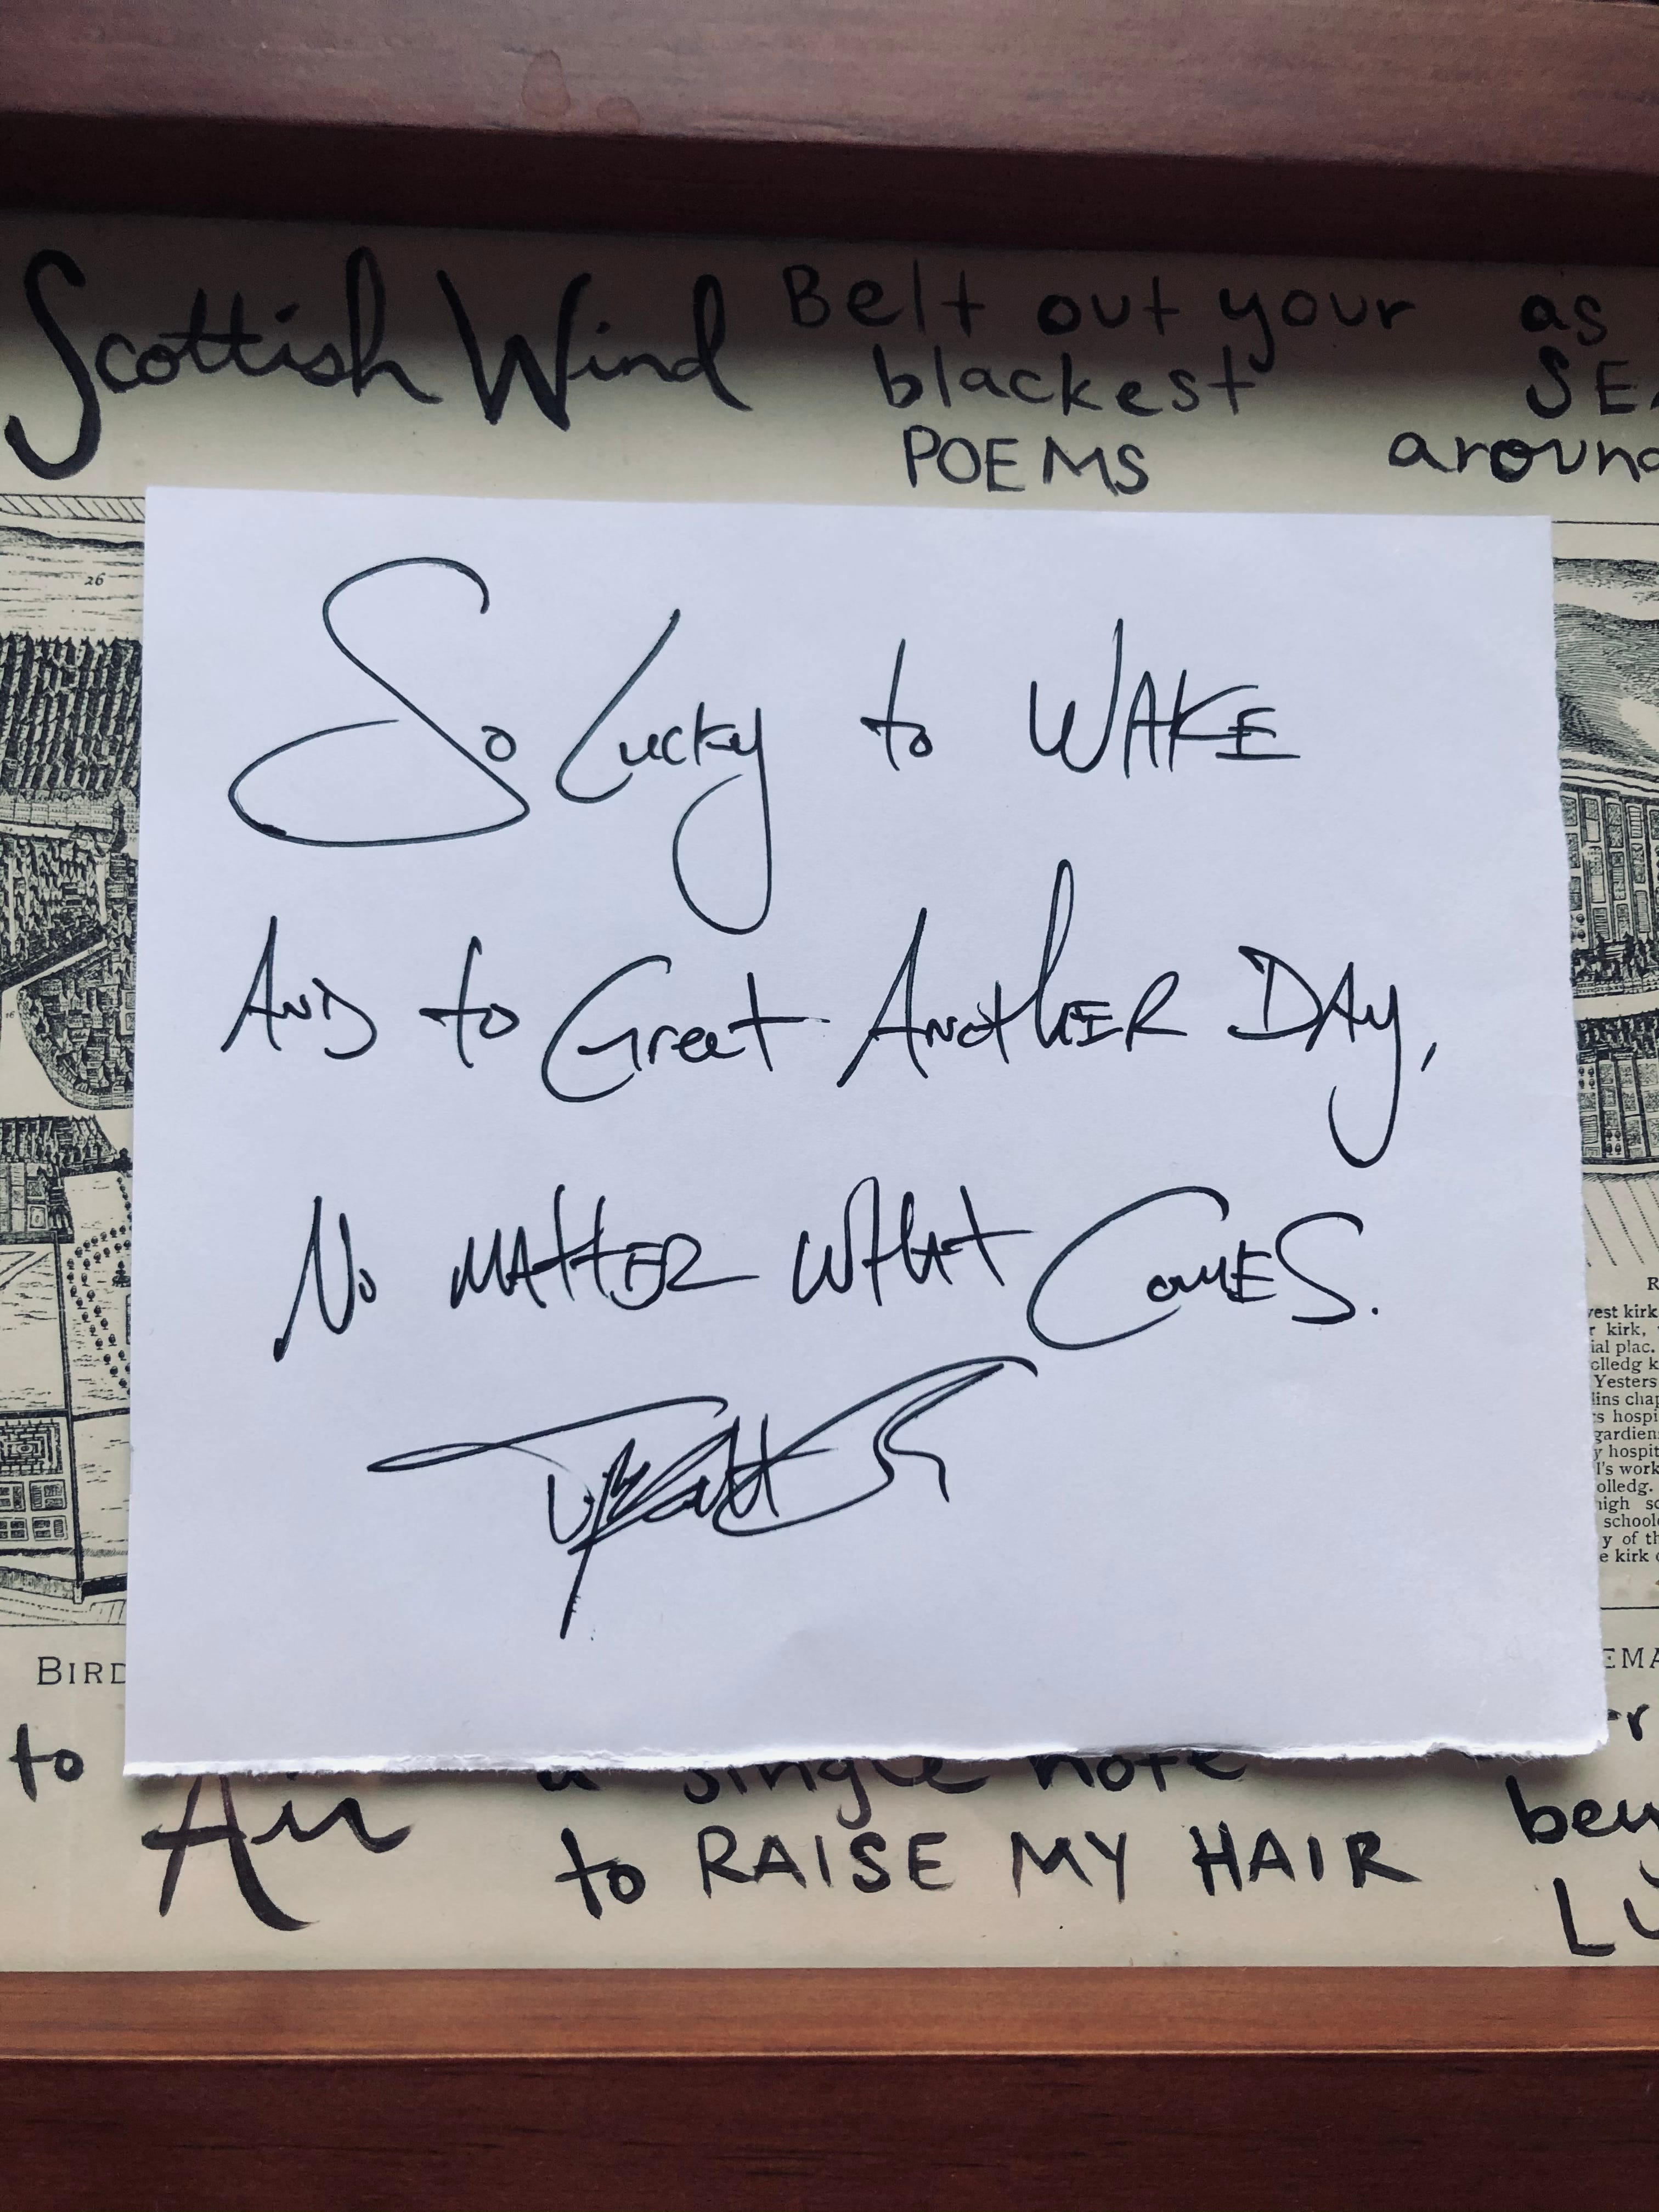 Scottish Wind Belt out your as
blackest
POEMS around
26
So Lucky to WAKE
AND to Greet ANothER DAy,
No MAttER WHAt ComES.
vest kirk
kirk,
ial plac.
olledg k
Yesters
lins chap
s hospi
gardien
y hospit
l's work
olledg.
high sc
schoole
y of th
e kirk
BIRD
to a single note
Air to RAISE MY HAIR